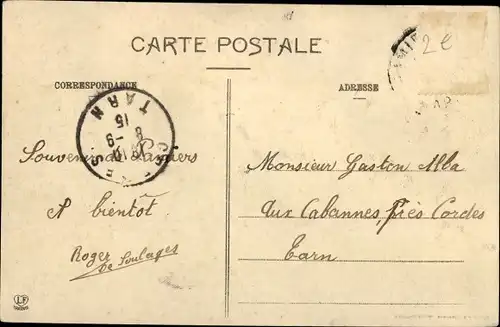 CARTE POSTALE
2 e
CORRESPONDANCE
ADRESSE
CORDES
TARN
15
8 - 9
Souvenir de Pamiers
A bientôt
Roger
De Soulages
Monsieur Gaston Alba
Aux Cabannes, près Cordes
Tarn
LF